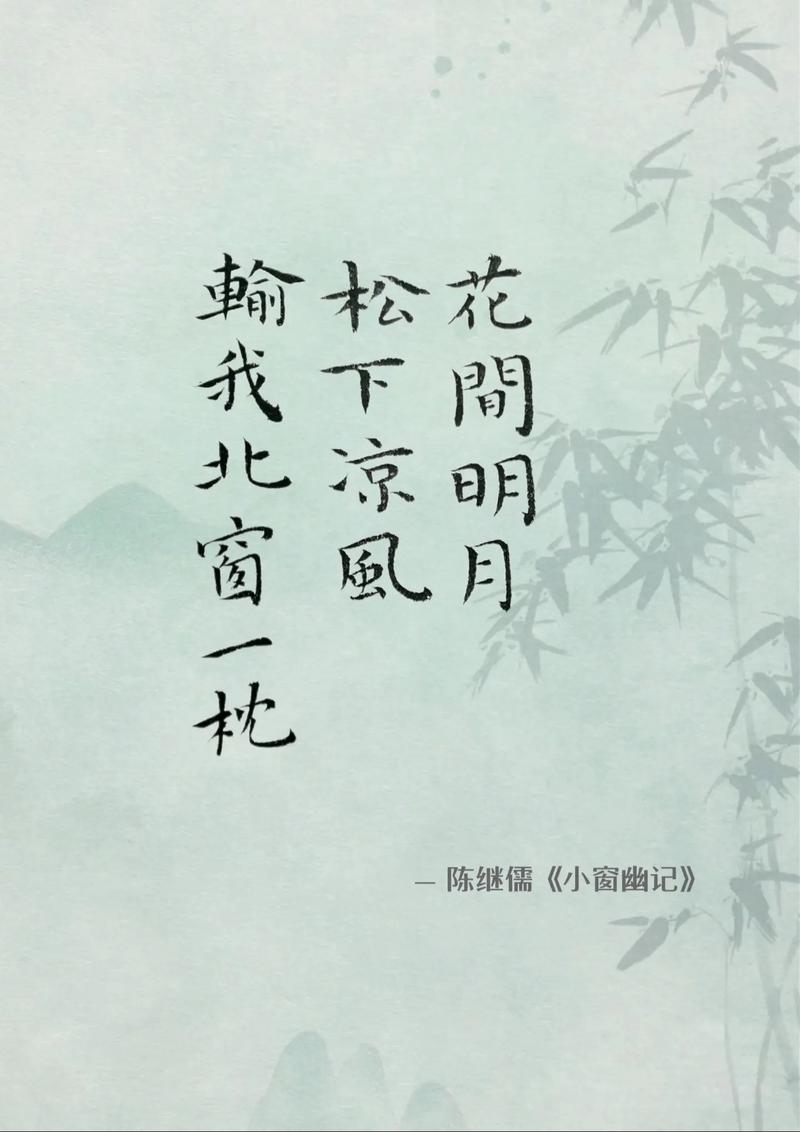 花間明月
松下凉風
輸我北窗一枕
— 陈继儒《小窗幽记》